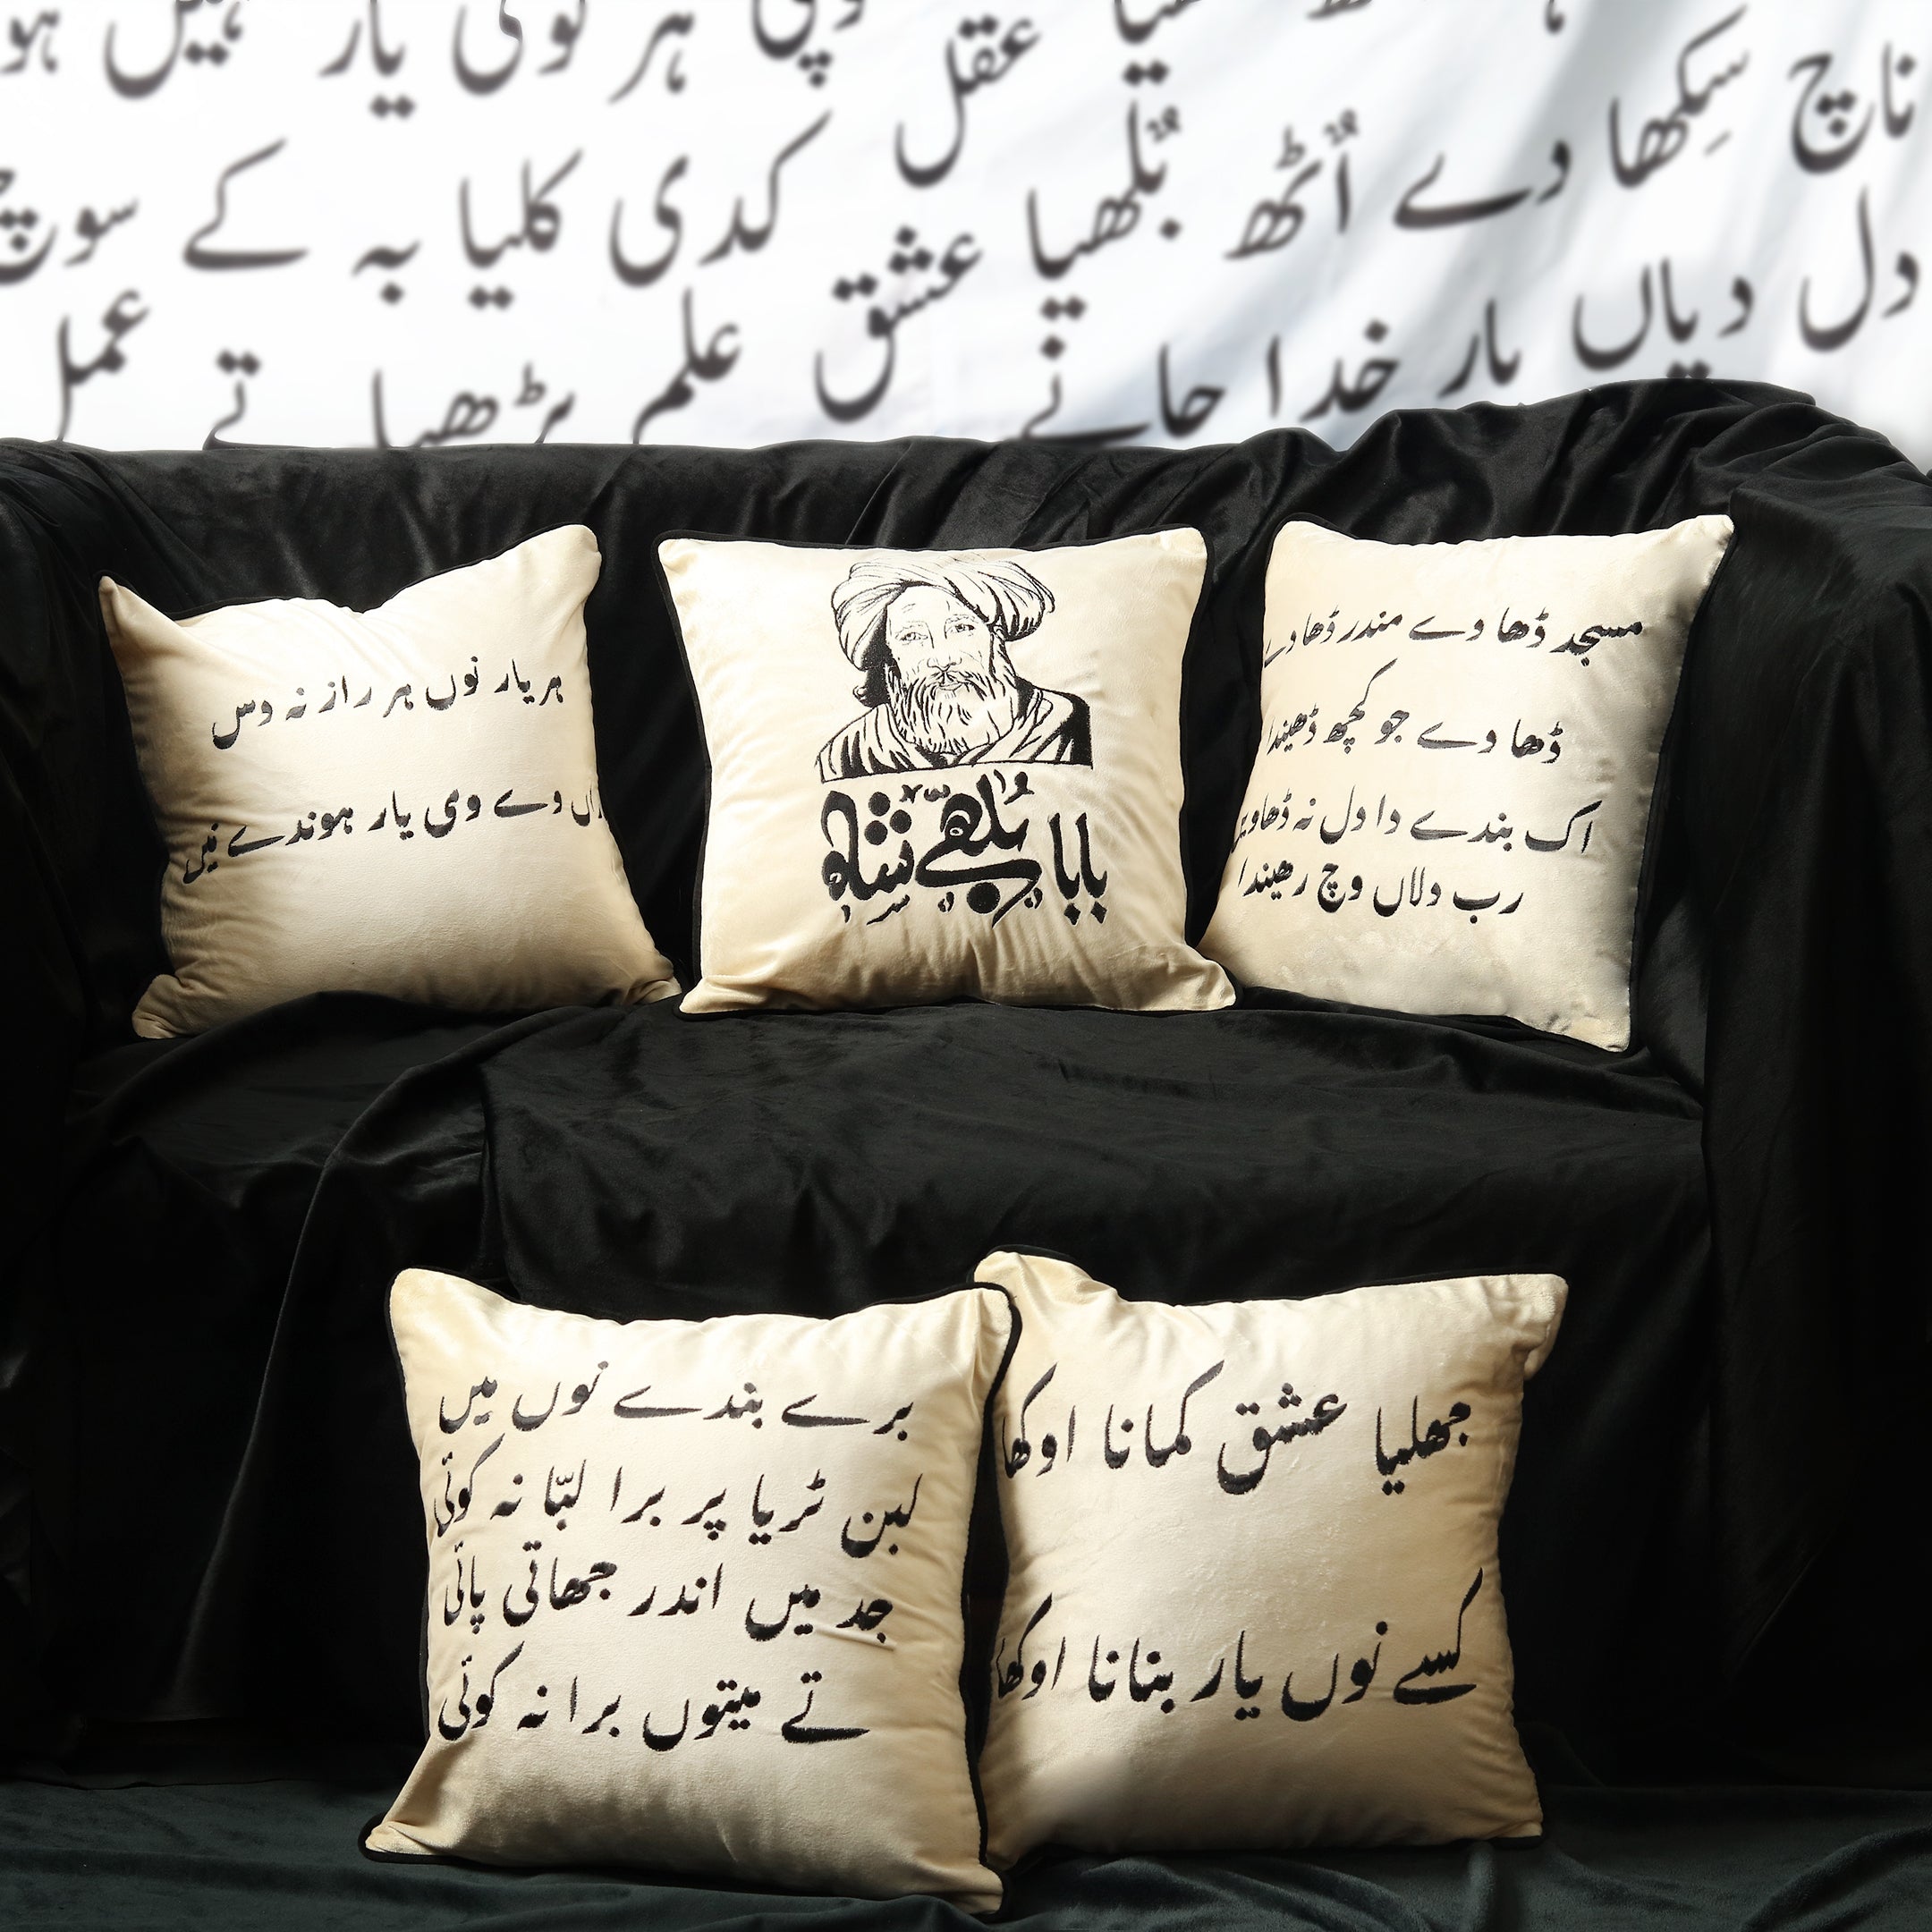 ہیں ہو
ہر کوئی یار
عقل
ناچ سِکھا دے اُٹھ بُلھیا
کدی کلیا بہ کے سوچ
عشق
دل دیاں یار خدا جانے
علم پڑھیا تے عمل
ہر یار نوں ہر راز نہ دس
وے وی یار ہوندے نیں
بابا بُلھے شاہ
مسجد ڈھا دے مندر ڈھا دے
ڈھا دے جو کجھ ڈھیندا
اک بندے دا دل نہ ڈھاویں
رب دلاں وچ رھیندا
برے بندے نوں میں
لبن ٹریا پر برا لبّا نہ کوئی
جد میں اندر جھاتی پائی
تے میتوں برا نہ کوئی
جھلیا عشق کمانا اوکھا
کسے نوں یار بنانا اوکھا